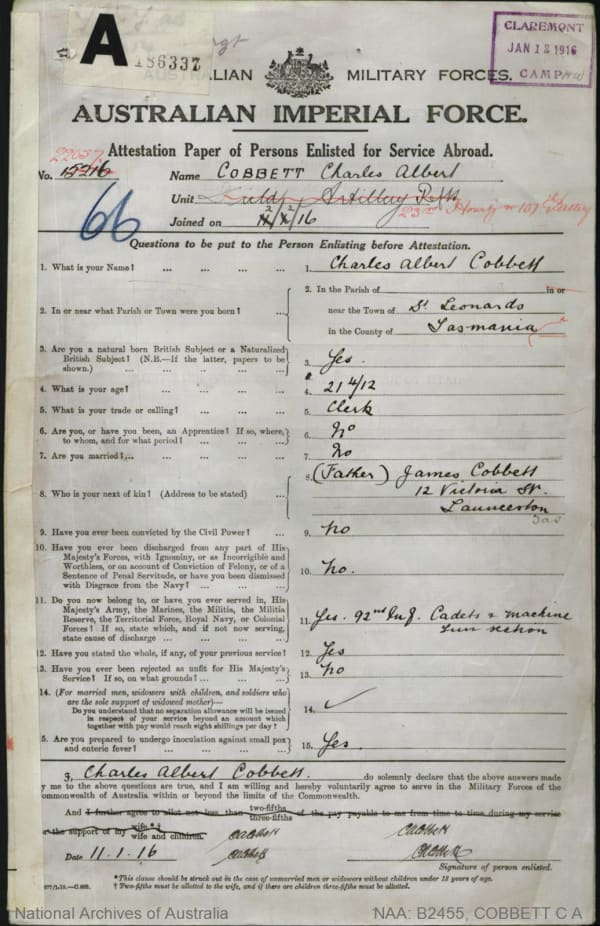 A
186337
CLAREMONT
JAN 12 1916
CAMP
ALIAN MILITARY FORCES.
AUSTRALIAN IMPERIAL FORCE.
Attestation Paper of Persons Enlisted for Service Abroad.
22057
No. 15216 Name COBBETT Charles Albert
Unit Field Artillery Rfts
23rd Howitzer 107th Battery
66
Joined on 12/2/16
Questions to be put to the Person Enlisting before Attestation.
1. What is your Name? ... ... ... ... 1. Charles Albert Cobbett
2. In or near what Parish or Town were you born? ... 2. In the Parish of in or
near the Town of St Leonards
in the County of Tasmania
3. Are you a natural born British Subject or a Naturalized
British Subject? (N.B.—If the latter, papers to be
shown.) ... ... ... ... 3. Yes.
4. What is your age? ... ... ... 4. 21 4/12
5. What is your trade or calling? ... ... ... 5. Clerk
6. Are you, or have you been, an Apprentice? If so, where,
to whom, and for what period? ... ... ... 6. No
7. Are you married? ... ... ... ... 7. No
8. Who is your next of kin? (Address to be stated) ... 8. (Father) James Cobbett
12 Victoria St.
Launceston
Tas
9. Have you ever been convicted by the Civil Power? ... 9. No
10. Have you ever been discharged from any part of His
Majesty's Forces, with Ignominy, or as Incorrigible and
Worthless, or on account of Conviction of Felony, or of a
Sentence of Penal Servitude, or have you been dismissed
with Disgrace from the Navy? ... ... ... 10. No.
11. Do you now belong to, or have you ever served in, His
Majesty's Army, the Marines, the Militia, the Militia
Reserve, the Territorial Force, Royal Navy, or Colonial
Forces? If so, state which, and if not now serving,
state cause of discharge ... ... ... 11. Yes. 92nd Inf. Cadets & Machine
Gun section
12. Have you stated the whole, if any, of your previous service? 12. Yes
13. Have you ever been rejected as unfit for His Majesty's
Service? If so, on what grounds? ... ... 13. No
14. (For married men, widowers with children, and soldiers who
are the sole support of widowed mother)—
Do you understand that no separation allowance will be issued
in respect of your service beyond an amount which
together with pay would reach eight shillings per day? 14. ✓
5. Are you prepared to undergo inoculation against small pox
and enteric fever? ... ... ... ... 15. Yes
I, Charles Albert Cobbett. do solemnly declare that the above answers made
y me to the above questions are true, and I am willing and hereby voluntarily agree to serve in the Military Forces of the
ommonwealth of Australia within or beyond the limits of the Commonwealth.
And I further agree to allot not less than two-fifths
three-fifths of the pay payable to me from time to time during my service
or the support of my wife *†
wife and children.
CACobbett CACobbett
Date 11.1.16 CACobbett CACobbett
Signature of person enlisted.
* This clause should be struck out in the case of unmarried men or widowers without children under 18 years of age.
† Two-fifths must be allotted to the wife, and if there are children three-fifths must be allotted.
National Archives of Australia NAA: B2455, COBBETT C A